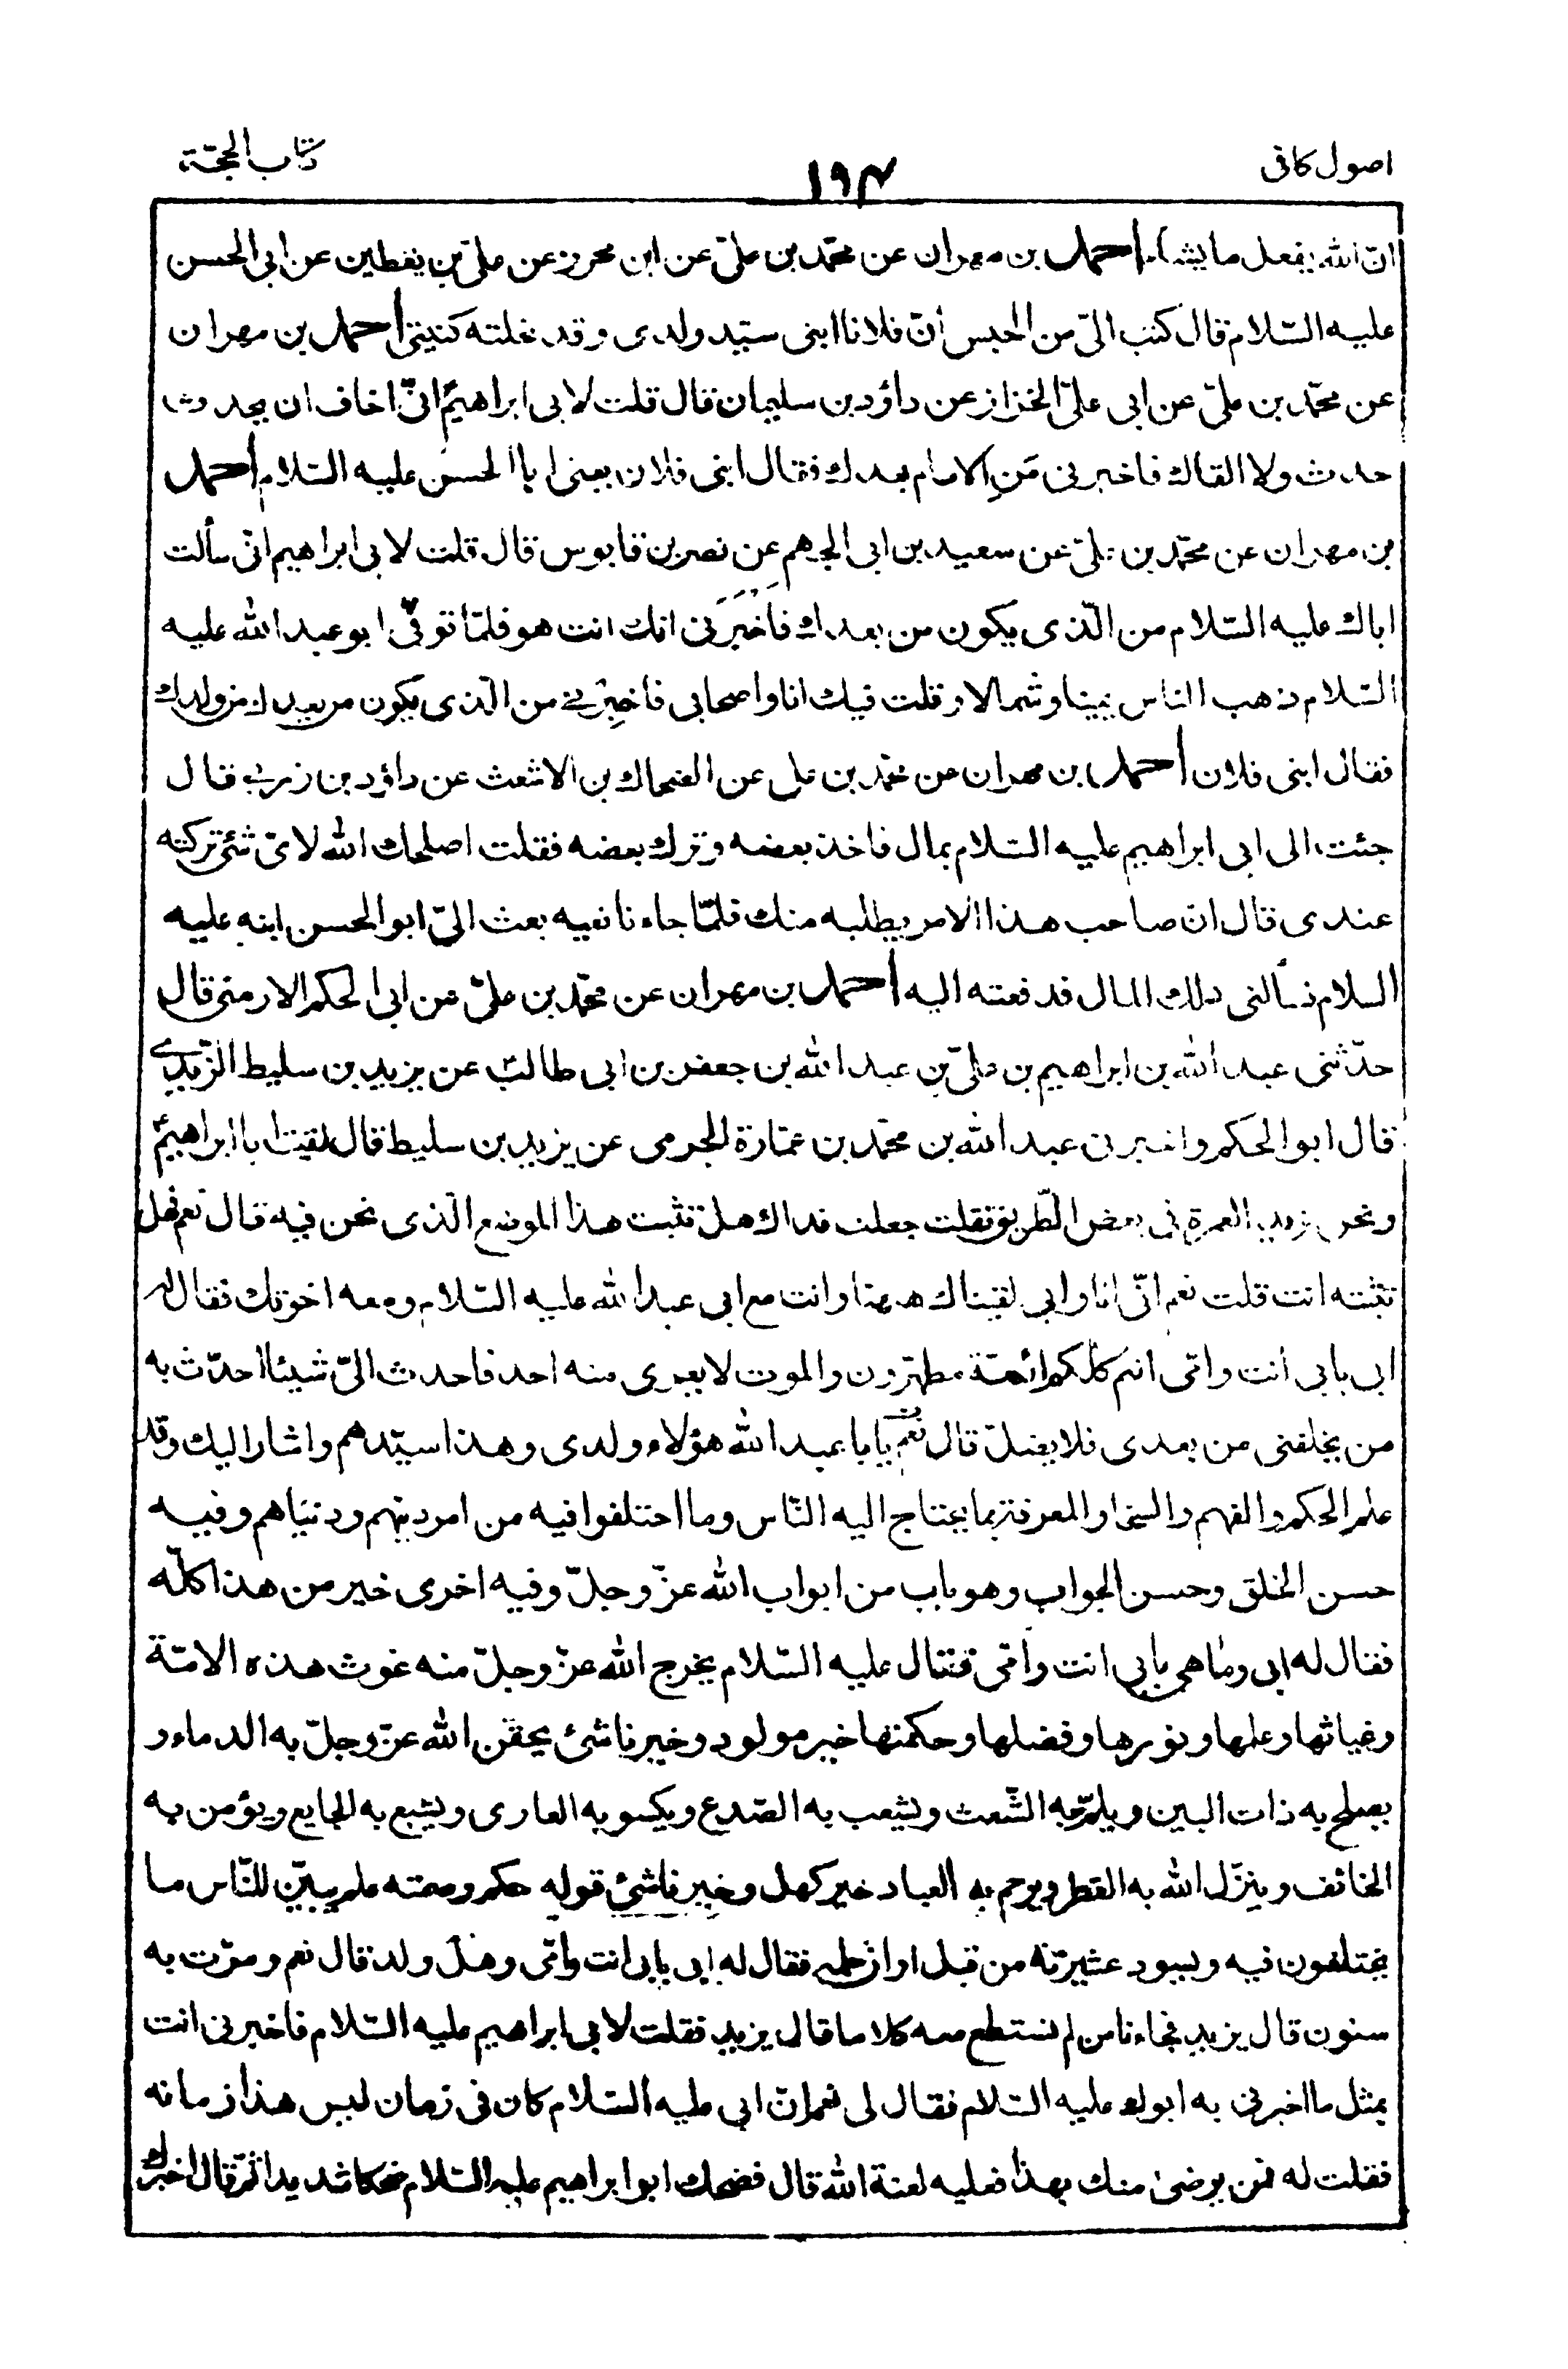 اصول كافى
١٩٤
كتاب الحجّة
انّ الله يفعل ما يشاء احمد بن مهران عن محمّد بن علىّ عن ابن محرز عن علىّ بن يقطين عن ابى الحسن
عليه السّلام قال كتب الىّ من الحبس أنّ فلانا ابنى سيّد ولدى وقد نحلته كنيتى احمد بن مهران
عن محمّد بن علىّ عن ابى علىّ الخزاز عن داؤد بن سليمان قال قلت لابى ابراهيمؑ انّى اخاف ان يحدث
حدث ولا القاك فاخبرنى مَنِ الامام بعدك فقال ابنى فلان يعنى ابا الحسن عليه السّلام احمد
بن مهران عن محمّد بن علىّ عن سعيد بن ابى الجهم عن نصر بن قابوس قال قلت لابى ابراهيم انّى سألت
اباك عليه السّلام من الّذى يكون من بعدك فاخبرنى انك انت هو فلمّا توفّى ابو عبد الله عليه
السّلام ذهب الناس يمينا وشمالا وقلت فيك انا واصحابى فاخبرنى من الّذى يكون من بعدك من ولدك
فقال ابنى فلان احمد بن مهران عن محمّد بن على عن الضحاك بن الاشعث عن داؤد بن زربى قال
جئت الى ابى ابراهيم عليه السّلام بمال فاخذ بعضه وترك بعضه فقلت اصلحك الله لاىّ شئ تركته
عندى قال انّ صاحب هذا الامر يطلبه منك فلمّا جاءنا نعيه بعث الىّ ابو الحسن ابنه عليه
السلام فسألنى ذلك المال فدفعته اليه احمد بن مهران عن محمّد بن علىّ عن ابى الحكم الارمنى قال
حدّثنى عبد الله بن ابراهيم بن علىّ بن عبد الله بن جعفر بن ابى طالب عن يزيد بن سليط الزّيدى
قال ابو الحكم واخبرنى عبد الله بن محمّد بن عمّارة الجرمى عن يزيد بن سليط قال لقيت ابا ابراهيمؑ
ونحن نريد العمرة فى بعض الطّريق فقلت جعلت فداك هل تثبت هذا الموضع الّذى نحن فيه قال نعم فهل
تثبته انت قلت نعم انّى انا وابى لقيناك ههنا وانت مع ابى عبد الله عليه السّلام ومعه اخوتك فقال له
ابى بابى أنت وامّى انتم كلّكم ائمّة مطهّرون والموت لا يعرى منه احد فاحدث الىّ شيئا احدّث به
من يخلفنى من بعدى فلا يضلّ قال نعم يا با عبد الله هؤلاء ولدى وهذا سيّدهم واشار اليك وقد
علم الحكم والفهم والسخا والمعرفة بما يحتاج اليه النّاس وما اختلفوا فيه من امر دينهم ودنياهم وفيه
حسن الخلق وحسن الجواب وهو باب من ابواب الله عزّ وجلّ وفيه اخرى خير من هذا كلّه
فقال له ابى وما هى بابى انت وامّى فقال عليه السّلام يخرج الله عزّ وجلّ منه غوث هذه الامّة
وغياثها وعلمها ونورها وفضلها وحكمتها خير مولود وخير ناشئ يحقن الله عزّ وجلّ به الدماء و
يصلح به ذات البين ويلمّ به الشّعث ويشعب به الصّدع ويكسو به العارى ويشبع به الجايع ويؤمن به
الخائف وينزّل الله به القطر ويرحم به العباد خير كهل وخير ناشئ قوله حكم وصمته علم يبيّن للنّاس ما
يختلفون فيه ويسود عشيرته من قبل اوان حلمه فقال له ابى بابى انت وامّى وهل ولد قال نعم ومرّت به
سنون قال يزيد فجاءنا من لم نستطع معه كلاما قال يزيد فقلت لابى ابراهيم عليه السّلام فاخبرنى انت
بمثل ما اخبرنى به ابوك عليه السّلام فقال لى نعم انّ ابى عليه السّلام كان فى زمان ليس هذا زمانه
فقلت له فمن يرضى منك بهذا فعليه لعنة الله قال فضحك ابو ابراهيم عليه السّلام ضحكا شديدا ثمّ قال اخبرك